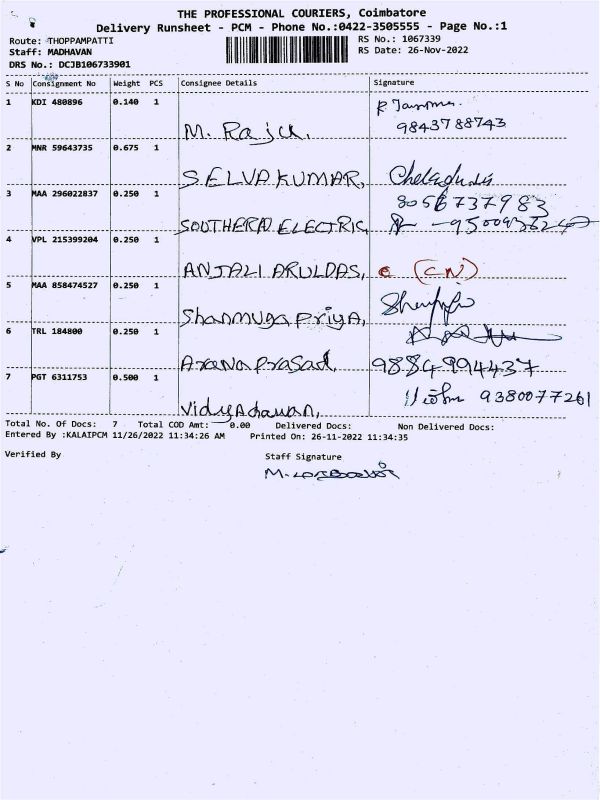 THE PROFESSIONAL COURIERS, Coimbatore
Delivery Runsheet - PCM - Phone No.:0422-3505555 - Page No.:1
Route: THOPPAMPATTI
RS No.: 1067339
Staff: MADHAVAN
RS Date: 26-Nov-2022
DRS No.: DCJB106733901
S No Consignment No Weight PCS Consignee Details Signature
1 KDI 480896 0.140 1
M. Raju,
9843788743
2 MNR 59643735 0.675 1
SELVAKUMAR,
8056737983
3 MAA 296022837 0.250 1
SOUTHERN ELECTRIC
4 VPL 215399204 0.250 1
ANJALI ARULDAS, (CN)
5 MAA 858474527 0.250 1
Shanmuga Priya,
6 TRL 184800 0.250 1
Arana Prasad, 9884994437
7 PGT 6311753 0.500 1
9380077261
Vidyadavan,
Total No. Of Docs: 7 Total COD Amt: 0.00 Delivered Docs: Non Delivered Docs:
Entered By :KALAIPCM 11/26/2022 11:34:26 AM Printed On: 26-11-2022 11:34:35
Verified By Staff Signature